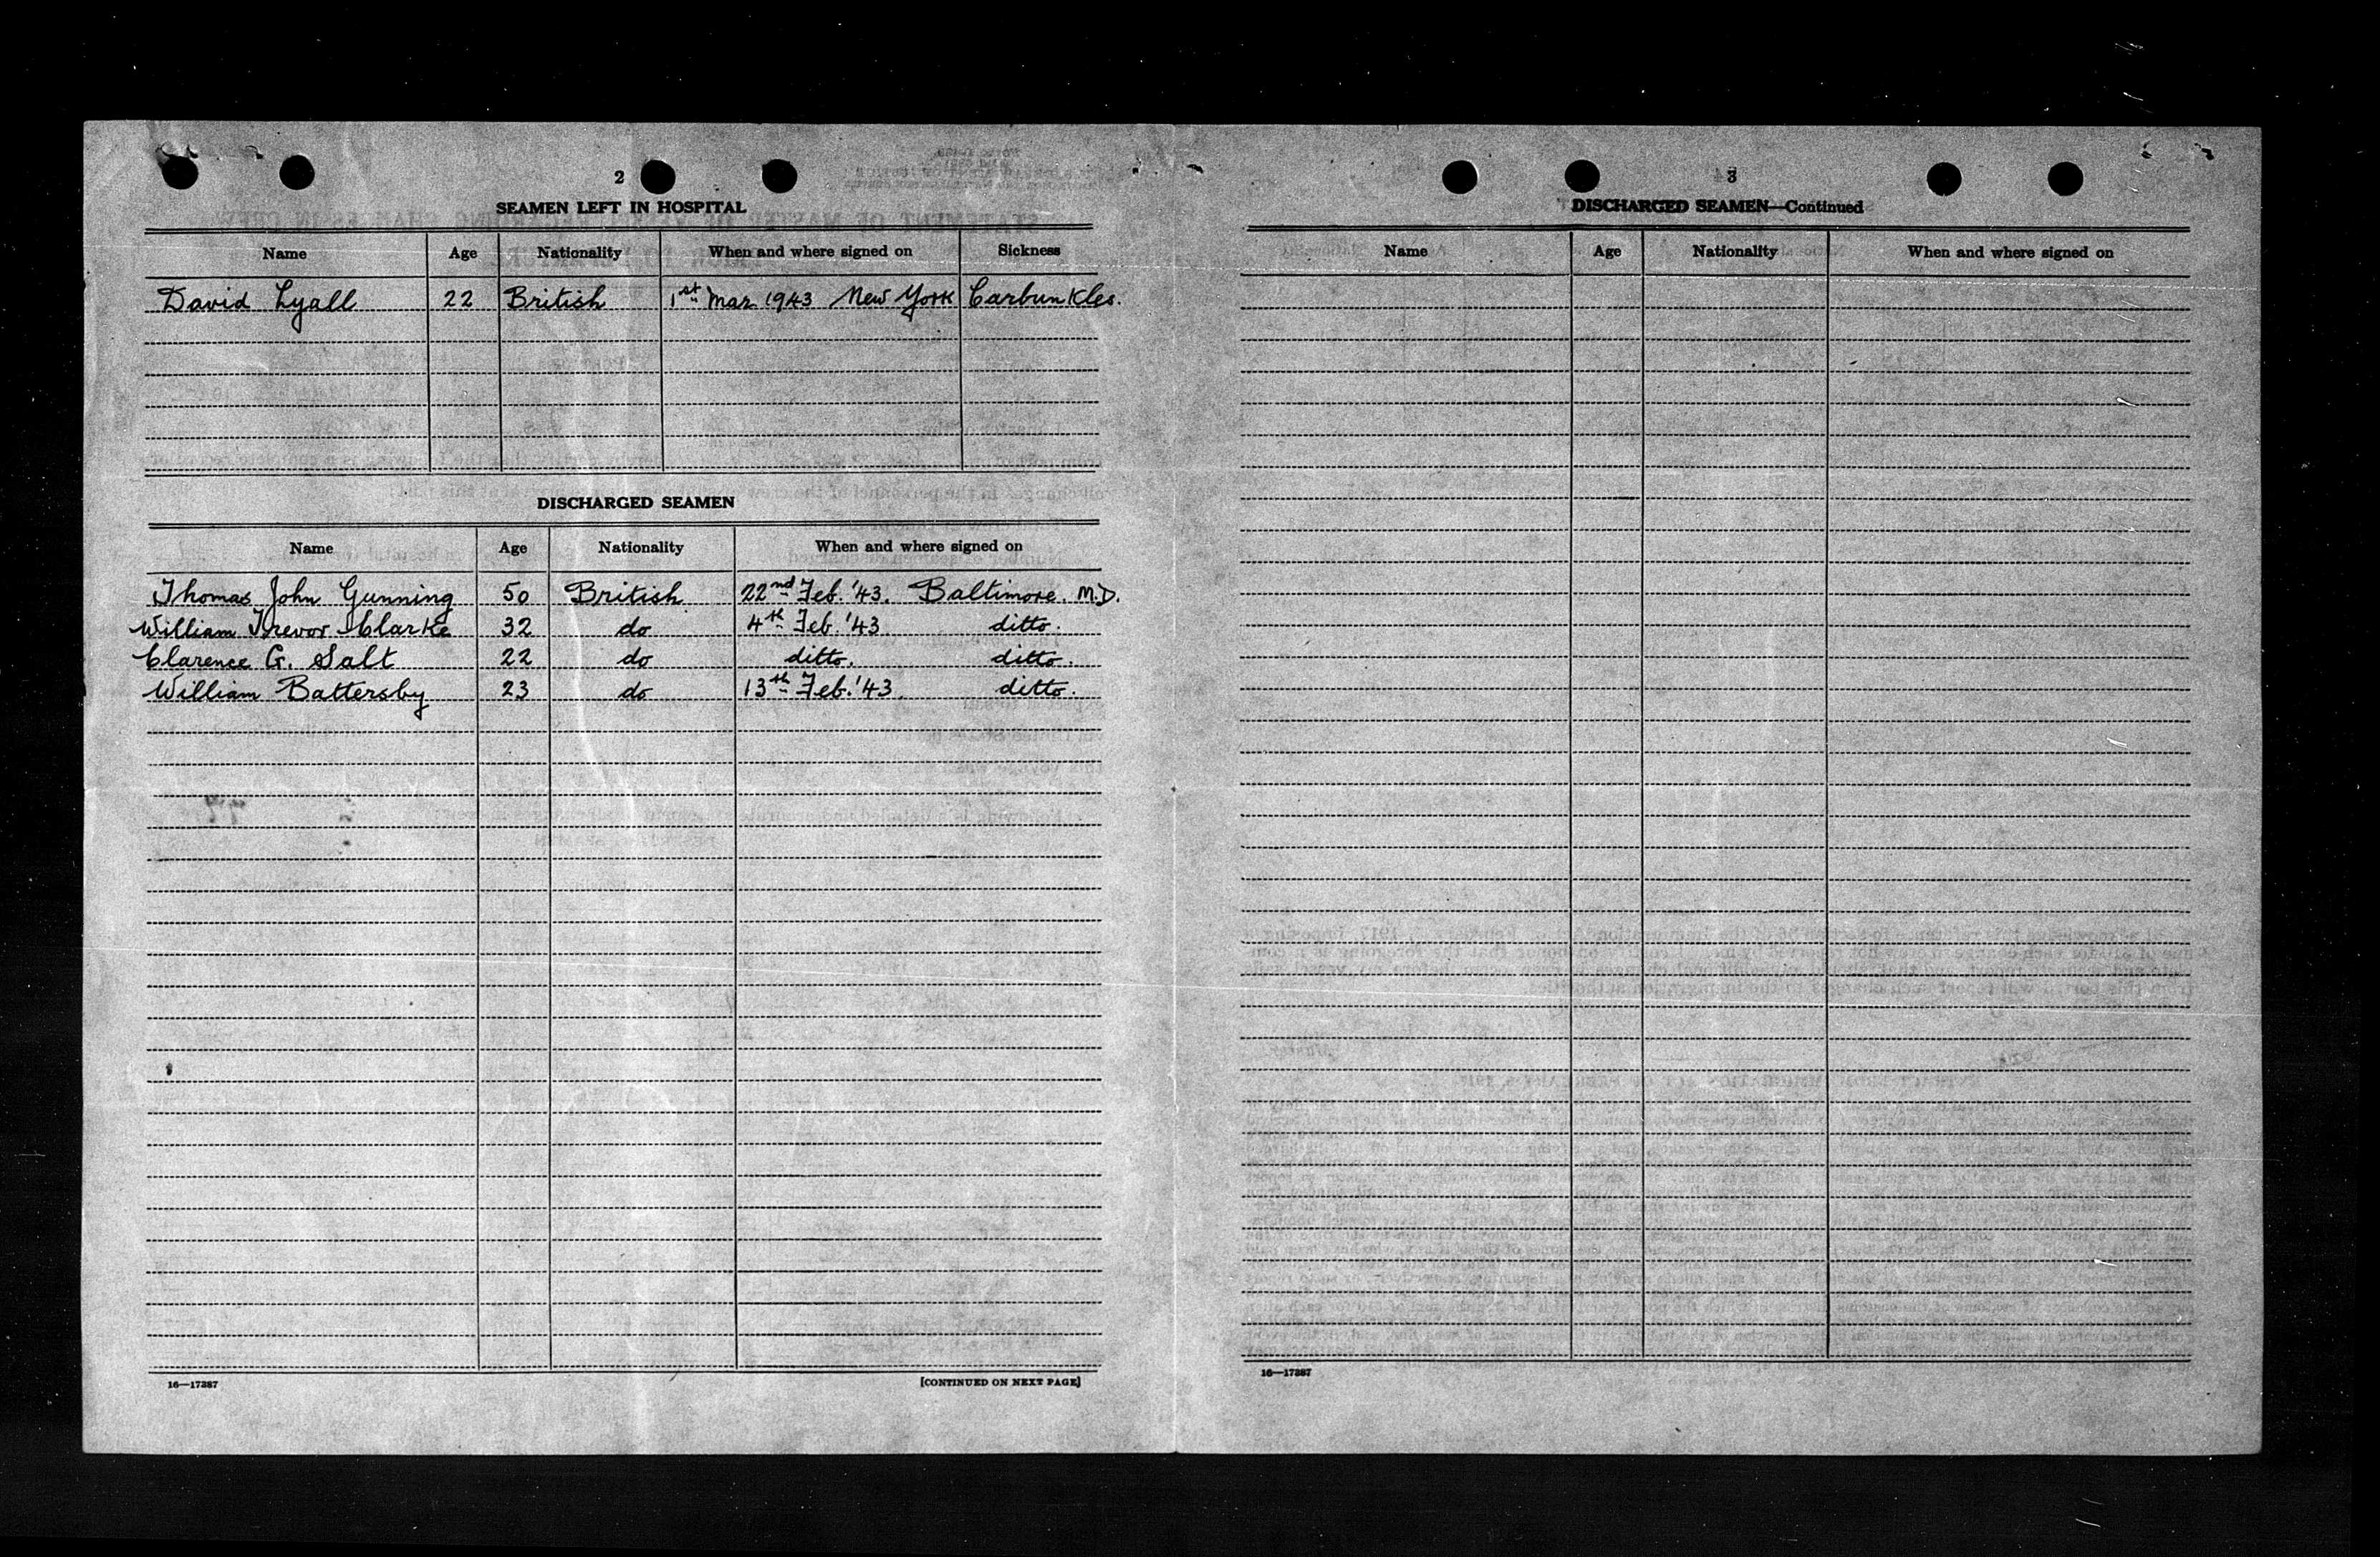 2
SEAMEN LEFT IN HOSPITAL
Name Age Nationality When and where signed on Sickness
David Lyall 22 British 1st Mar 1943 New York Carbunkles.
DISCHARGED SEAMEN
Name Age Nationality When and where signed on
Thomas John Gunning 50 British 22nd Feb. '43. Baltimore. M.D.
William Trevor Clarke 32 do 4th Feb. '43 ditto.
Clarence G. Salt 22 do ditto. ditto.
William Battersby 23 do 13th Feb. '43. ditto.
16—17287
[CONTINUED ON NEXT PAGE]
3
DISCHARGED SEAMEN—Continued
Name Age Nationality When and where signed on
16—17287